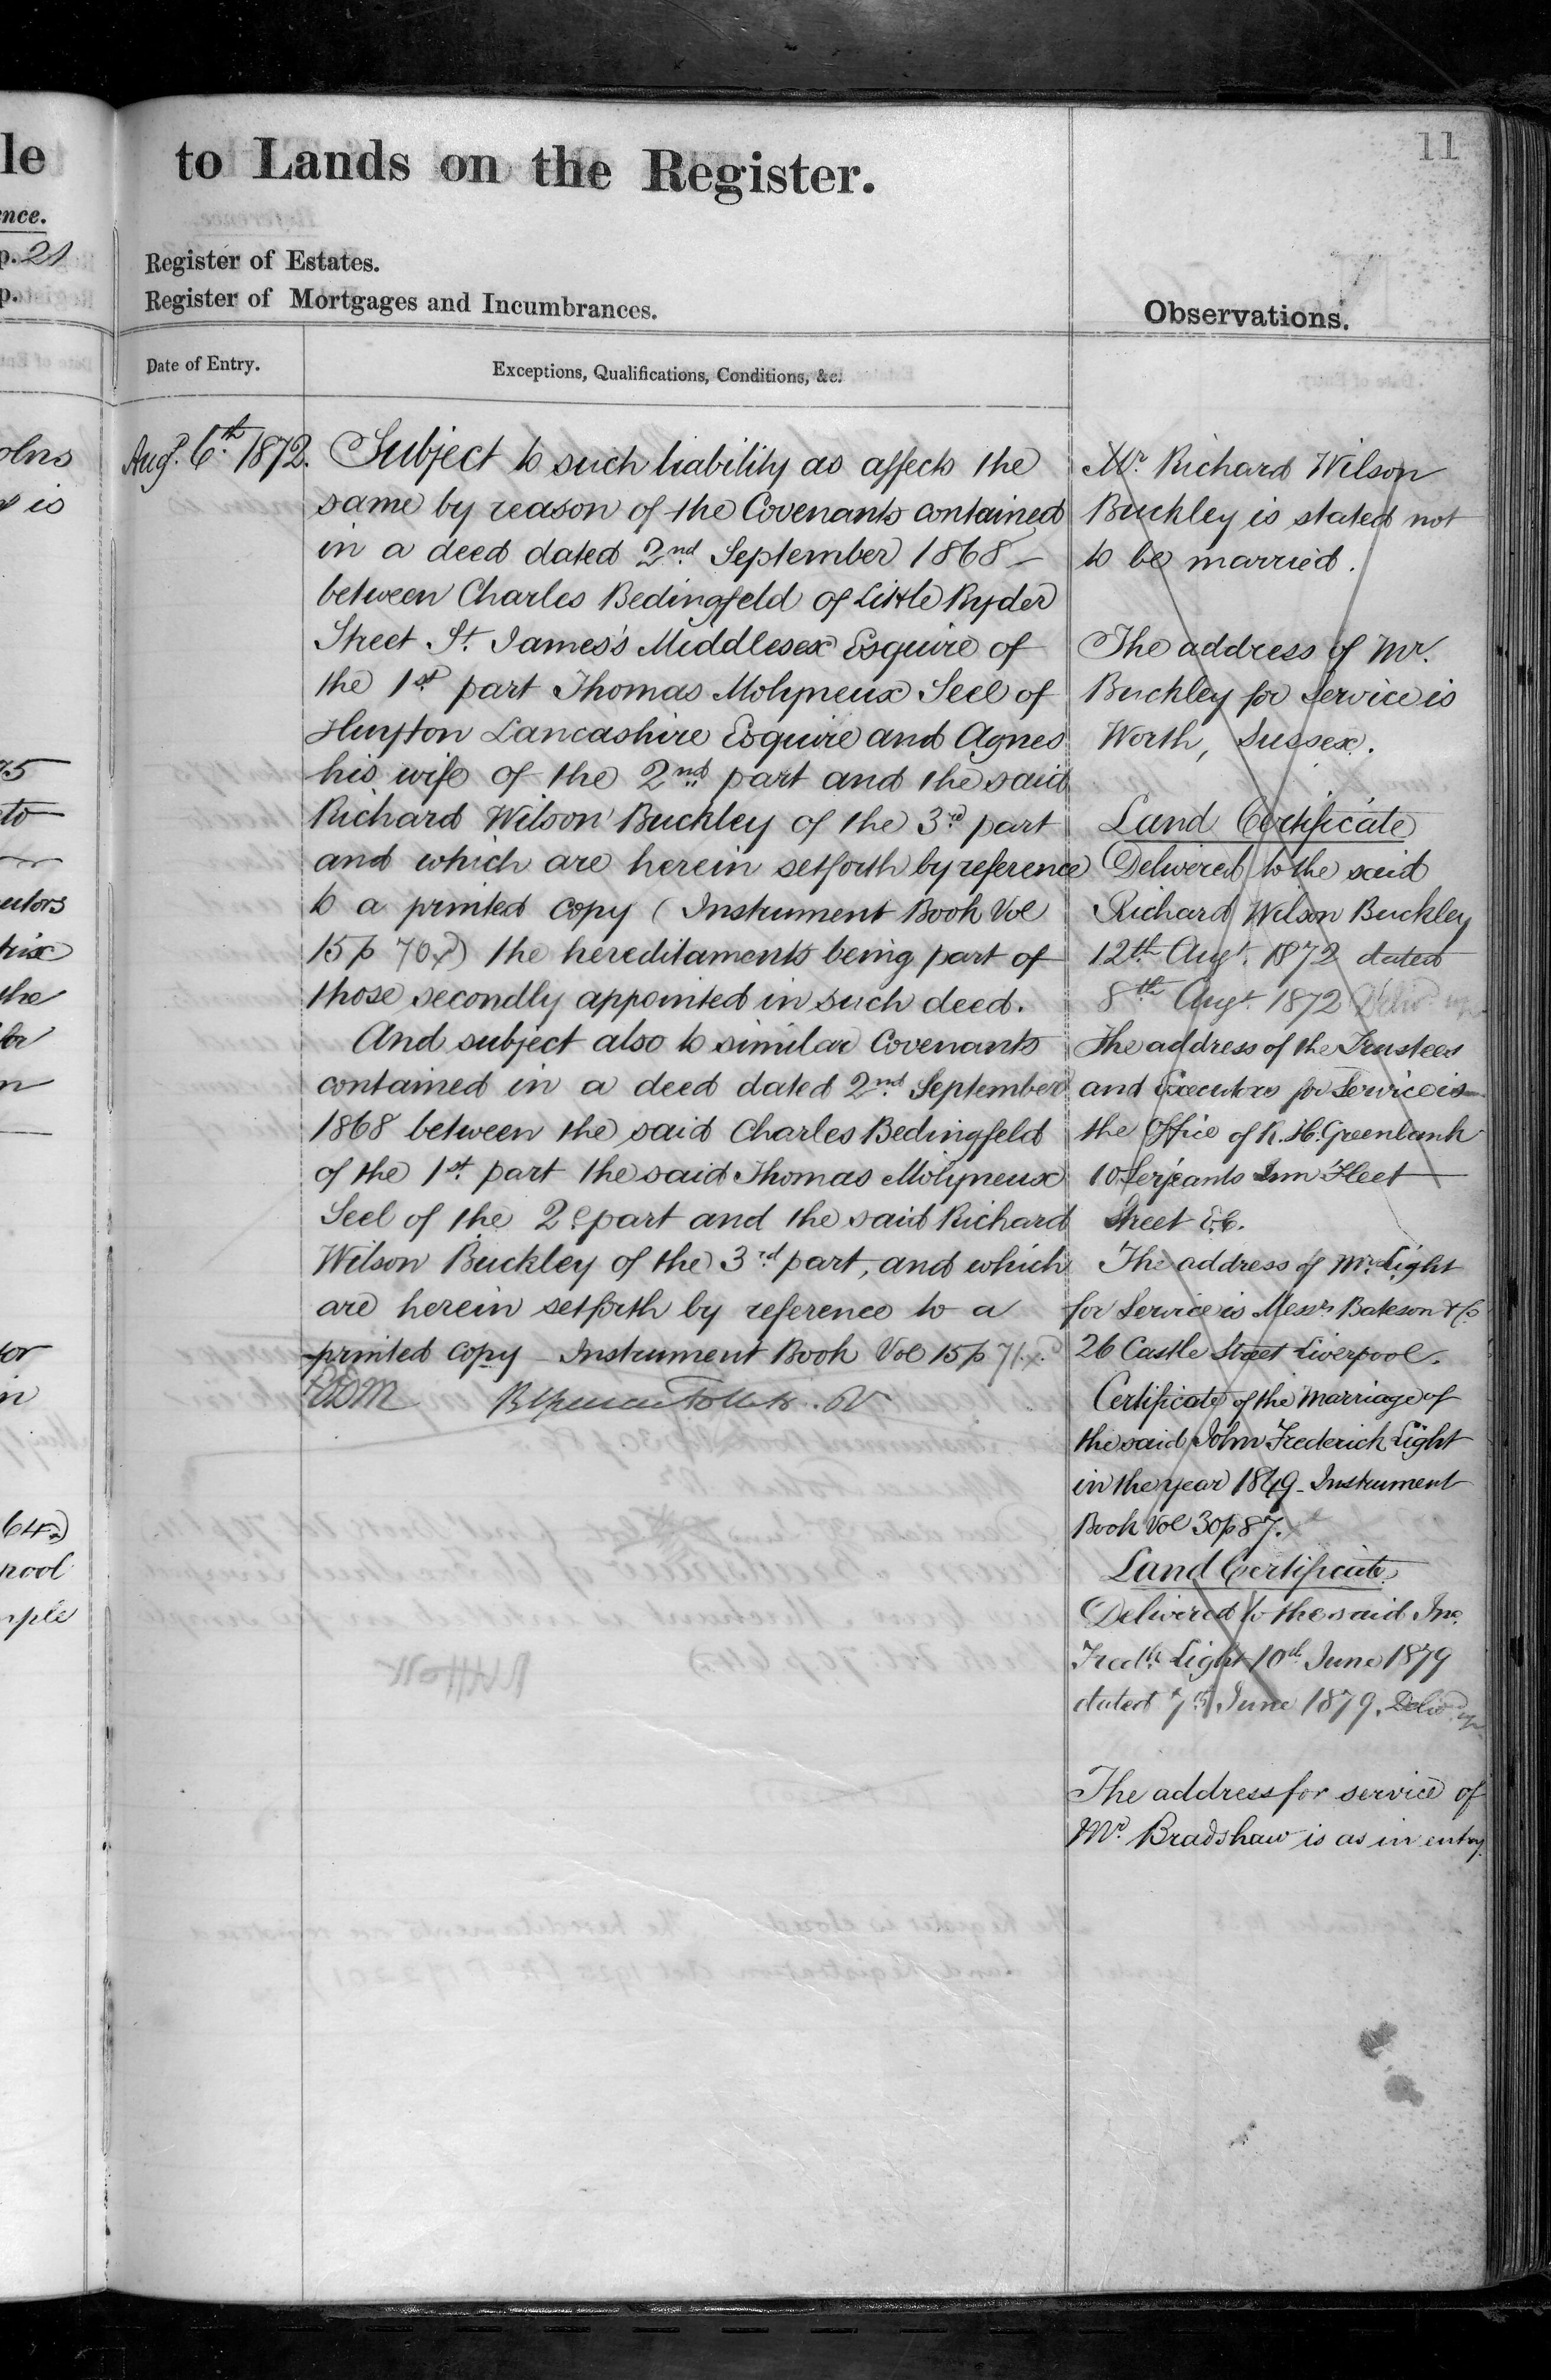 le
nce.
p. 21
p.
olns
is
75
to
utors
trix
the
for
in
64
pool
mple
11
to Lands on the Register.
Register of Estates.
Register of Mortgages and Incumbrances.
Observations.
Date of Entry.
Exceptions, Qualifications, Conditions, &c.
Augt. 6th. 1872.
Subject to such liability as affects the
same by reason of the Covenants contained
in a deed dated 2nd September 1868 –
between Charles Bedingfeld of Little Ryder
Street St. James's Middlesex Esquire of
the 1st part Thomas Molyneux Seel of
Huyton Lancashire Esquire and Agnes
his wife of the 2nd part and the said
Richard Wilson Buckley of the 3rd part
and which are herein setforth by reference
to a printed copy (Instrument Book Vol
15 p 70 ) the hereditaments being part of
those secondly appointed in such deed.
And subject also to similar Covenants
contained in a deed dated 2nd September
1868 between the said Charles Bedingfeld
of the 1st part the said Thomas Molyneux
Seel of the 2d part and the said Richard
Wilson Buckley of the 3rd part, and which
are herein setforth by reference to a
printed copy – Instrument Book Vol 15 p 71.
Mr. Richard Wilson
Buckley is stated not
to be married.
The address of Mr.
Buckley for Service is
Worth, Sussex.
Land Certificate
Delivered to the said
Richard Wilson Buckley
12th Augt. 1872 dated
8th Augt. 1872 Delivd. up
The address of the Trustees
and Executors for Service is
the Office of R. H. Greenbank
10 Serjeants Inn Fleet
Street E.C.
The address of Mr. Light
for Service is Messrs Bateson & Co.
26 Castle Street Liverpool.
Certificate of the marriage of
the said John Frederick Light
in the year 1849 – Instrument
Book Vol 30 p 87.
Land Certificate
Delivered to the said Jno.
Fredk. Light 10th June 1879
dated 7th June 1879. Delivd. up
The address for service of
Mr. Bradshaw is as in entry.